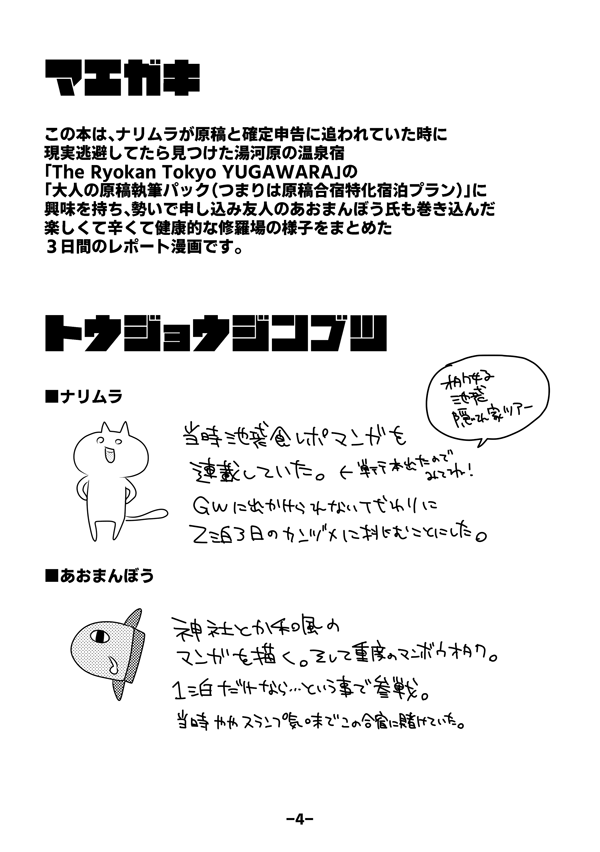 マエガキ
この本は、ナリムラが原稿と確定申告に追われていた時に
現実逃避してたら見つけた湯河原の温泉宿
「The Ryokan Tokyo YUGAWARA」の
「大人の原稿執筆パック（つまりは原稿合宿特化宿泊プラン）」に
興味を持ち、勢いで申し込み友人のあおまんぼう氏も巻き込んだ
楽しくて辛くて健康的な修羅場の様子をまとめた
３日間のレポート漫画です。
トウジョウジンブツ
■ナリムラ
当時池袋食レポマンガを
連載していた。←単行本出たので
みてね!
池袋
隠れ家ツアー
GWに出かけられない代わりに
2泊3日のカンヅメに挑むことにした。
■あおまんぼう
神社とか和風の
マンガを描く。そして重度のマンボウオタク。
1泊だけなら…という事で参戦。
当時ややスランプ気味でこの合宿に賭けていた。
-4-